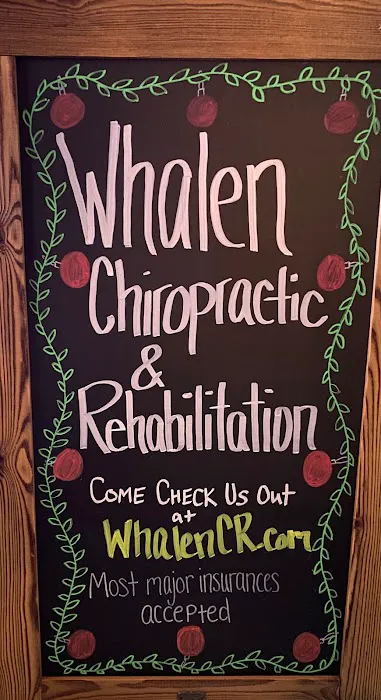 Whalen
Chiropractic
&
Rehabilitation
Come Check Us Out
at
WhalenCR.com
Most major insurances
accepted